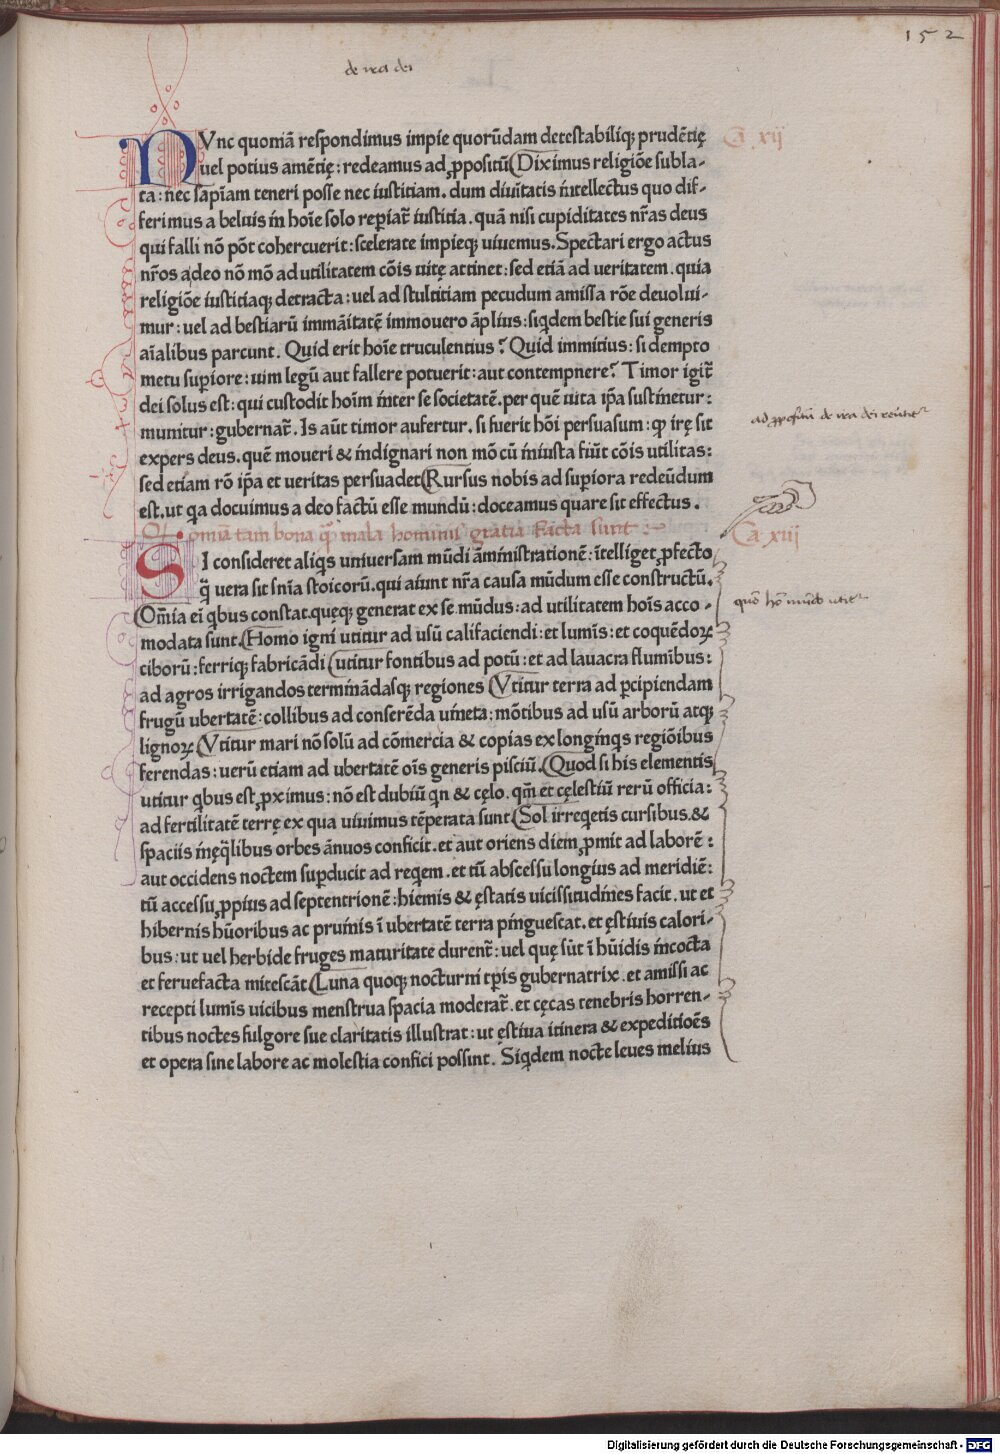 152
de ira dei
NVnc quoniā respondimus impie quorūdam detestabiliq; prudētię
Ca. xij
uel potius amētię : redeamus ad ꝓpositū (Diximus religiōe subla-
ta : nec sapīam teneri posse nec iustitiam . dum diuītatis ītellectus quo dif-
ferimus a beluis in hoīe solo reperiat̄ iustitia . quā nisi cupiditates nr̄as deus
qui falli nō pōt cohercuerit : scelerate impieq; uiuemus . Spectari ergo actus
nr̄os adeo nō mō ad utilitatem cōis uitę attinet : sed etiā ad ueritatem . quia
religiōe iustitiaq; detracta : uel ad stultitiam pecudum amissa rōe deuolui-
mur : uel ad bestiarū immāitatē immouero āplius : siqdem bestie sui generis
aīalibus parcunt . Quid erit hoīe truculentius ? Quid immitius : si dempto
metu superiore : uim legū aut fallere potuerit : aut contempnere ? Timor igit̄
dei solus est : qui custodit hoīm inter se societatē . per quē uita ip̄a sustinetur :
munitur : gubernat̄ . Is aūt timor aufertur . si fuerit hōi persuasum : ꝙ irę sit
expers deus . quē moueri & indignari non mō cū iniusta fiūt cōis utilitas :
sed etiam rō ip̄a et ueritas persuadet (Rursus nobis ad superiora redeūdum
est . ut qa docuimus a deo factū esse mundū : doceamus quare sit effectus .
Ꝙ omīa tam bona qm̄ mala hominis gratia facta sunt
Ca. xiij
SI consideret aliqs uniuersam mūdi āministrationē : ītelliget ꝓfecto
q̄ uera sit sn̄ia stoicorū . qui aiunt nr̄a causa mūdum esse constructū .
quō hō mūdo utit̄
(Om̄ia ei qbus constat . quęq; generat ex se mūdus : ad utilitatem hoīs acco -
modata sunt . (Homo igni utitur ad usū califaciendi : et lumīs : et coquēdoꝝ
ciborū : ferriq; fabricādi (utitur fontibus ad potū : et ad lauacra flumībus :
ad agros irrigandos termināndasq; regiones (Vtitur terra ad percipiendam
frugū ubertatē : collibus ad conserēda uineta : mōtibus ad usū arborū atq;
lignoꝝ (Vtitur mari nō solū ad cōmercia & copias ex longinqs regiōibus
ferendas : uerū etiam ad ubertatē oīs generis pisciū . (Quod si his elementis
utitur qbus est ꝓximus : nō est dubiū qn & cęlo . qm̄ et cęlestiū rerū officia :
ad fertilitatē terrę ex qua uiuimus tēperata sunt (Sol irreqetis cursibus . &
spaciis ineq̄libus orbes ānuos conficit . et aut oriens diem ꝓmit ad laborē :
aut occidens noctem superducit ad reqem . et tū abscessu longius ad meridiē :
tū accessu ꝓpius ad septentrionē : hiemis & ęstatis uicissitudines facit . ut et
hibernis hūoribus ac pruinis ī ubertatē terra pinguescat . et ęstiuis calori-
bus : ut uel herbide fruges maturitate durent̄ : uel quę sūt ī hūidis incocta
et feruefacta mitescāt (Luna quoq; nocturni tp̄is gubernatrix . et amissi ac
recepti lumīs uicibus menstrua spacia moderat̄ . et cęcas tenebris horren-
tibus noctes fulgore sue claritatis illustrat : ut ęstiua itinera & expeditioēs
et opera sine labore ac molestia confici possint . Siqdem nocte leues melius
Digitalisierung gefördert durch die Deutsche Forschungsgemeinschaft - DFG